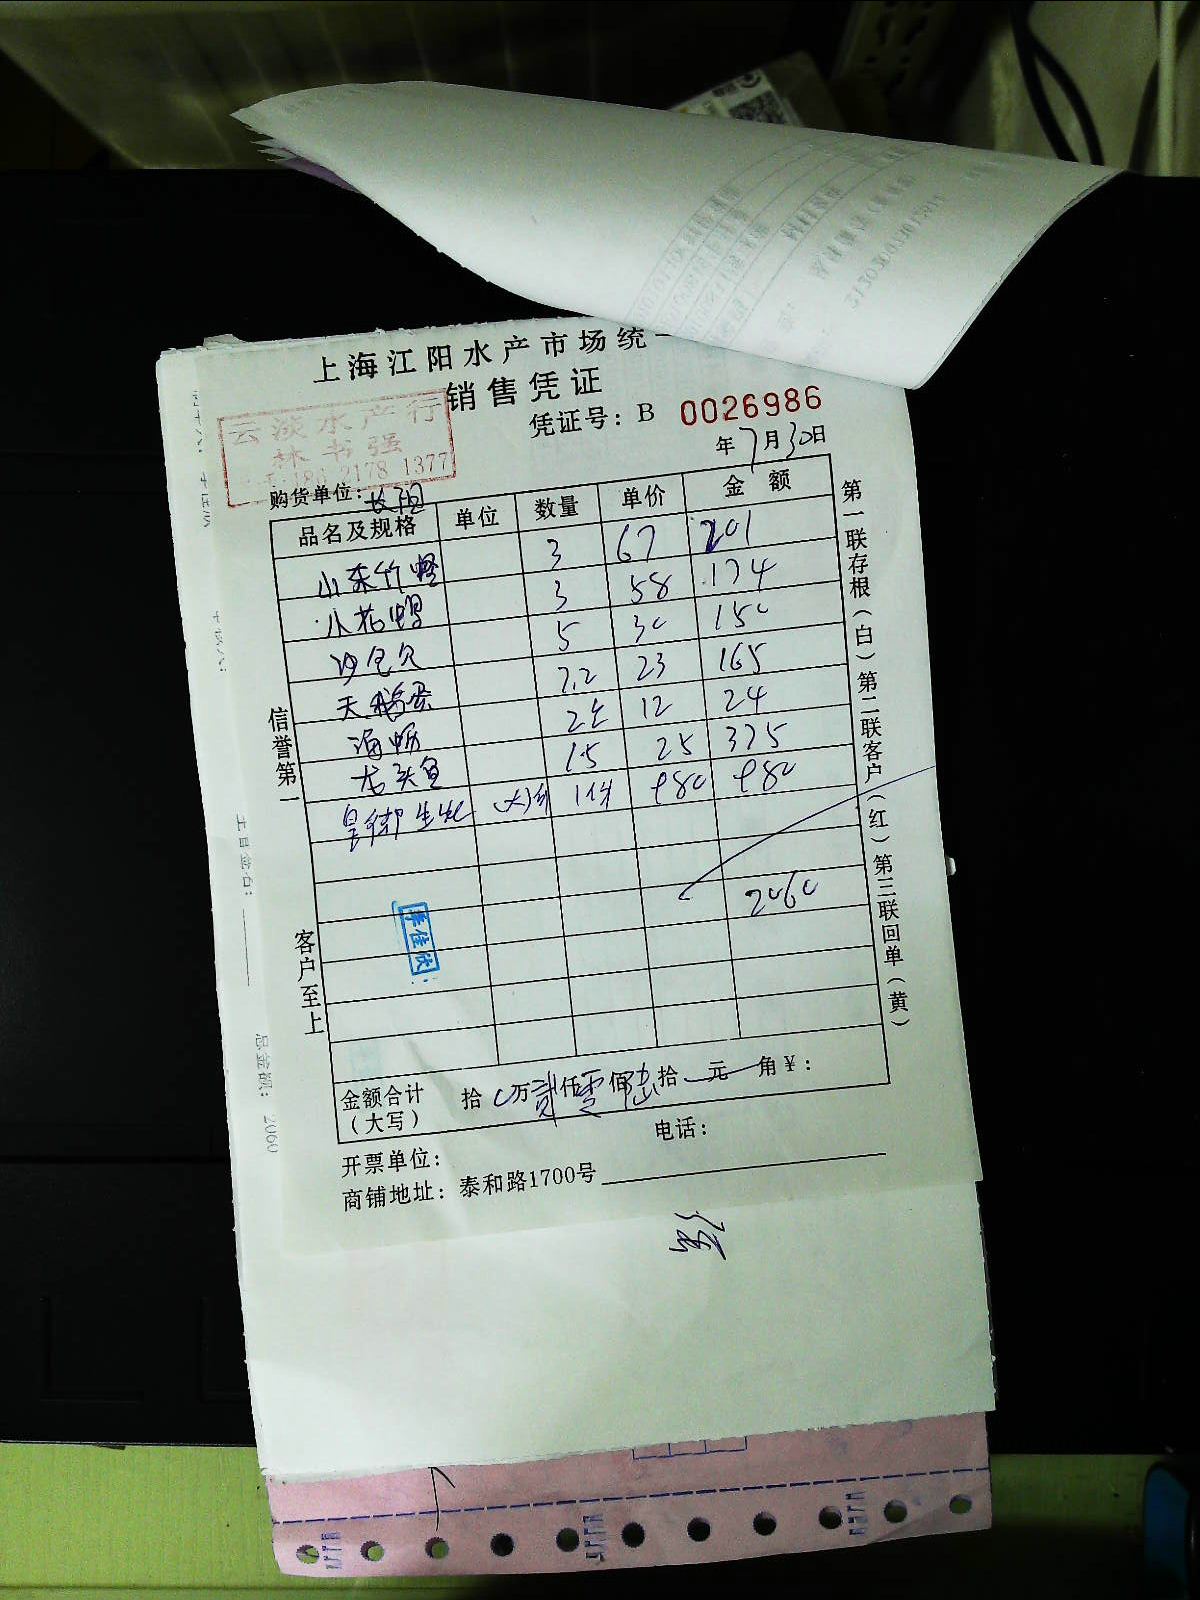 上海江阳水产市场统一
销售凭证
凭证号：B 0026986
云淡水产行
林书强
186 2178 1377
年7月30日
购货单位：长阳
品名及规格 单位 数量 单价 金额
小东竹蛏 3 67 201
小花甲 3 58 174
沙包欠 5 30 150
天鹅蛋 7.2 23 165
海蛎 2斤 12 24
龙头鱼 1.5 25 375
皇御生蚝 1件 980 980
2060
李佳欣
金额合计（大写） 拾0万贰仟零佰陆拾元角￥：
开票单位： 电话：
商铺地址：泰和路1700号
信誉第一
客户至上
第一联存根（白）第二联客户（红）第三联回单（黄）
总金额：2060